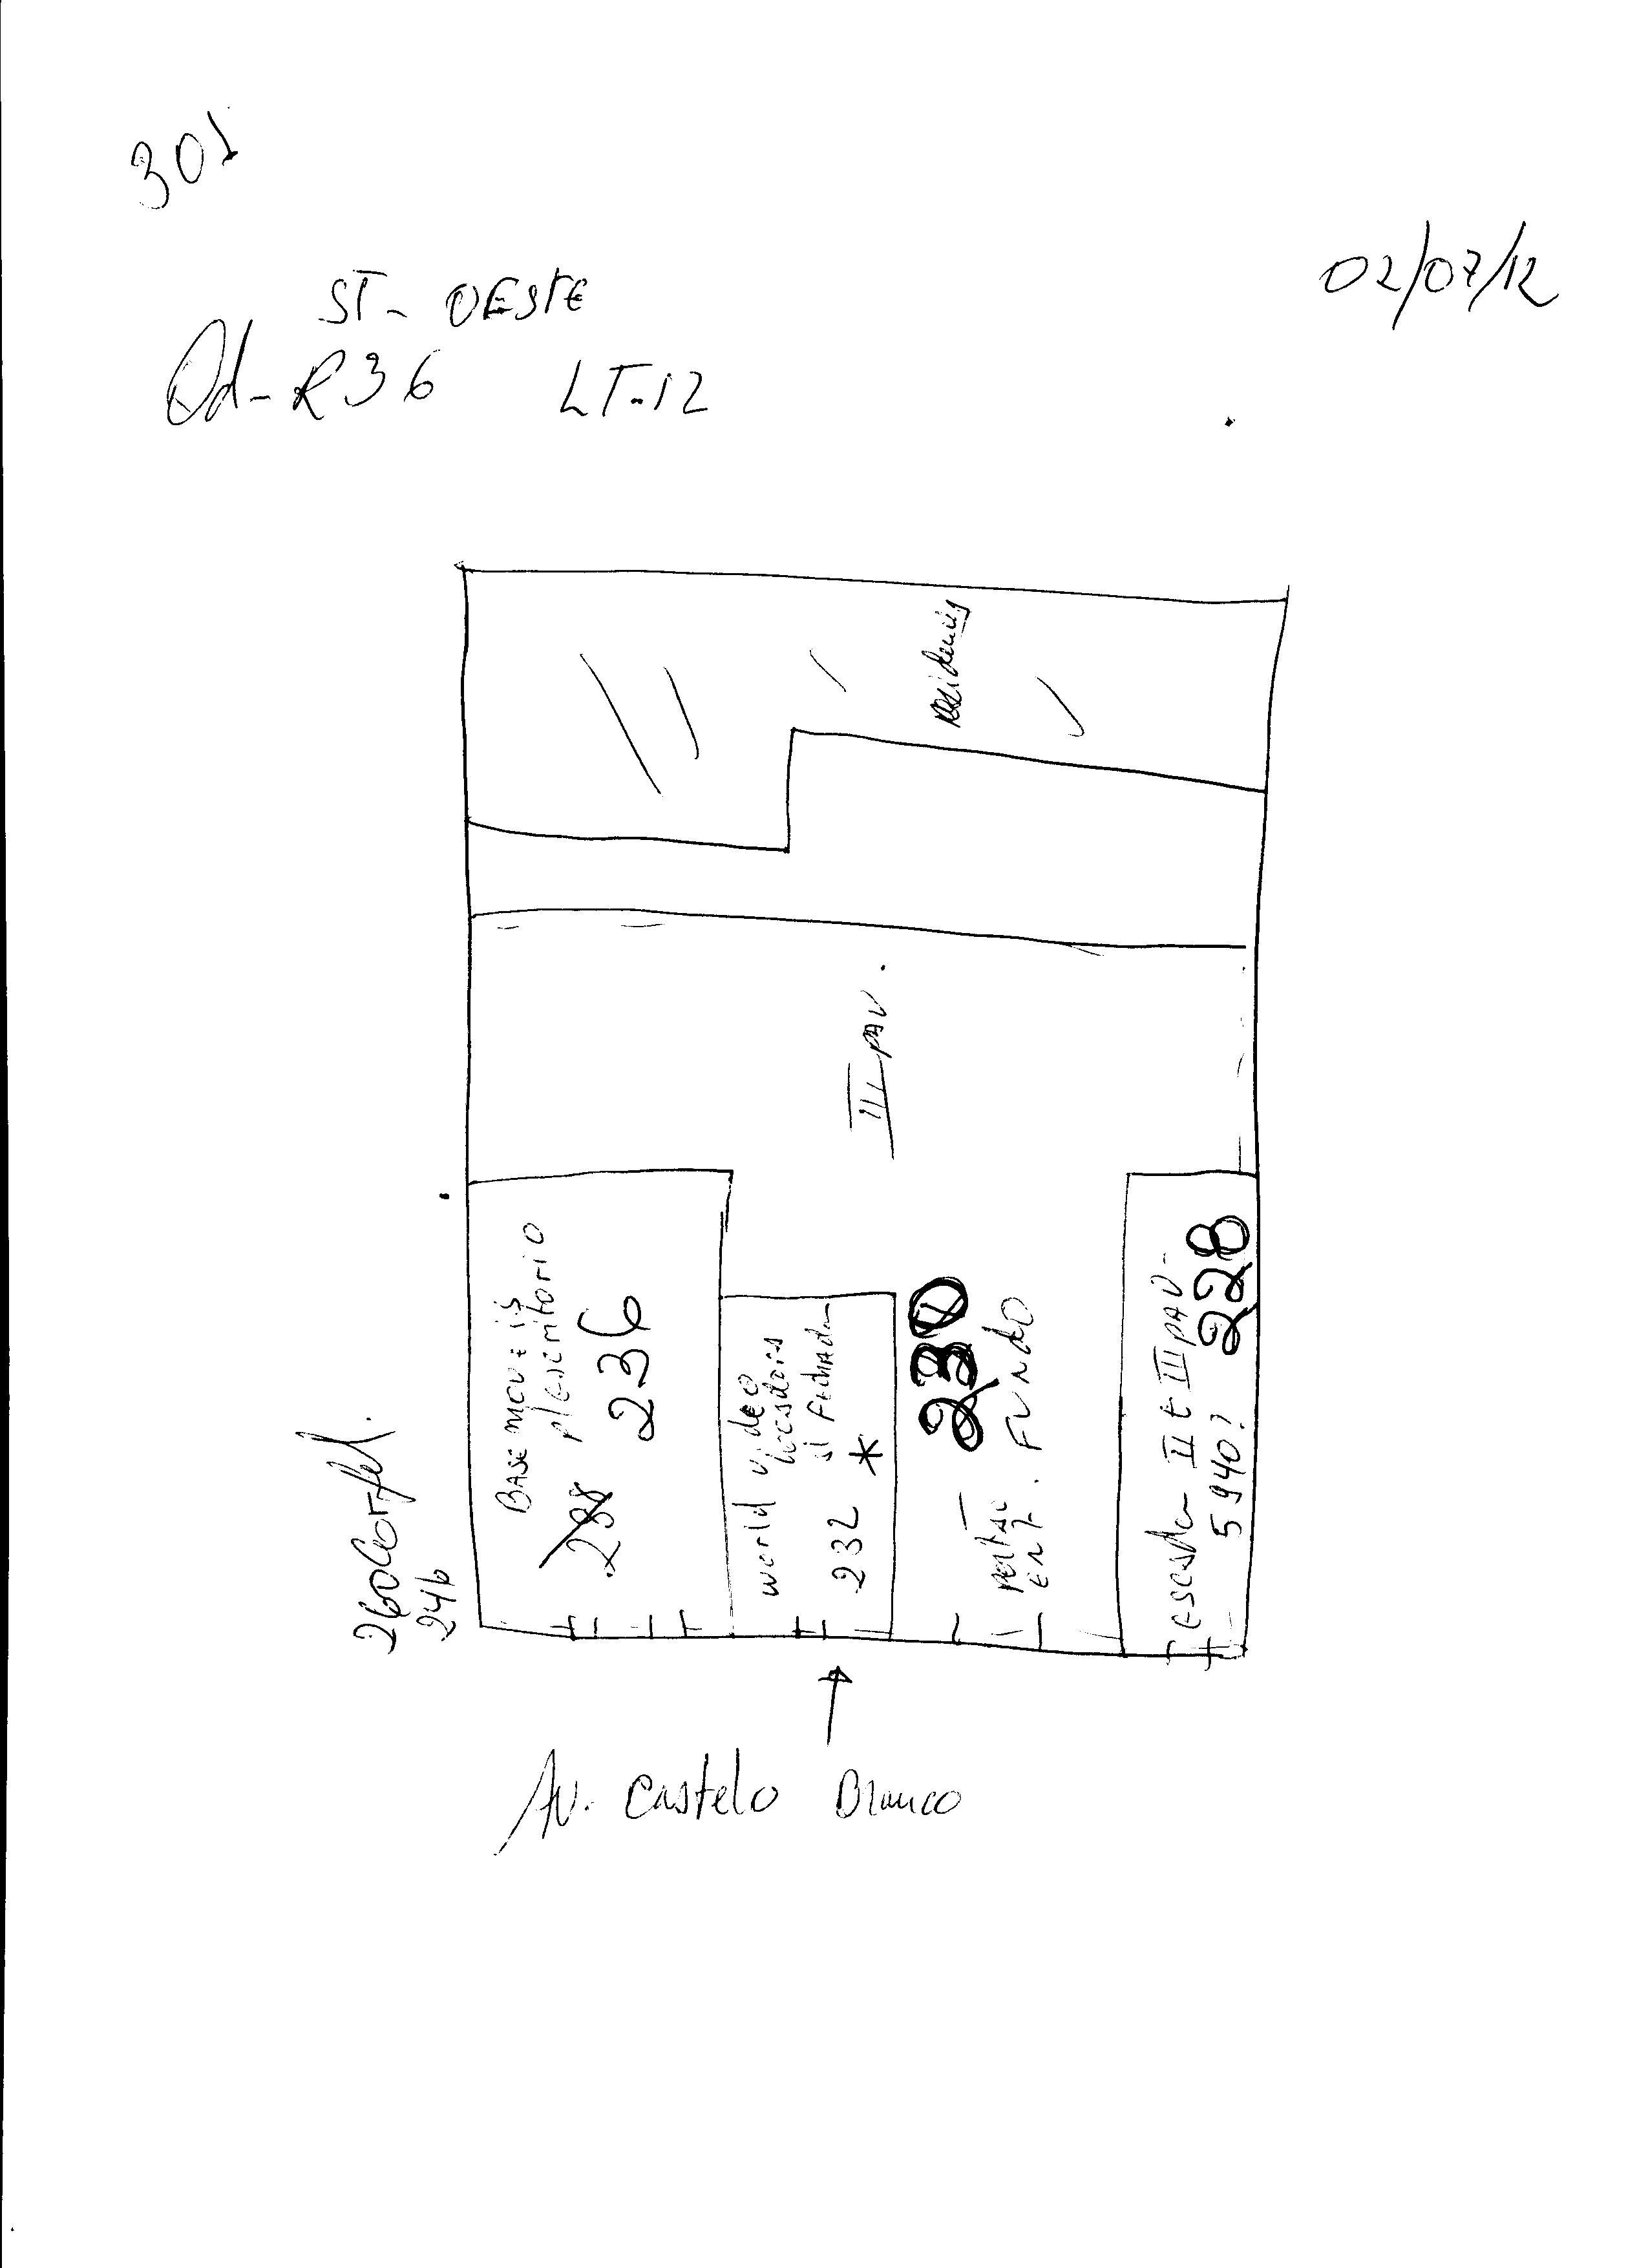 301
02/07/12
ST- OESTE
Qd-R36 LT-12
Residencia
III PAV.
BASE MOVEIS
p/escritorio
238 236
World video
locadora
s/ Fachada
232 *
230
portão
Ent. FUNDO
escada II E III PAV-
5940? 228
260
246
Av. Castelo Branco